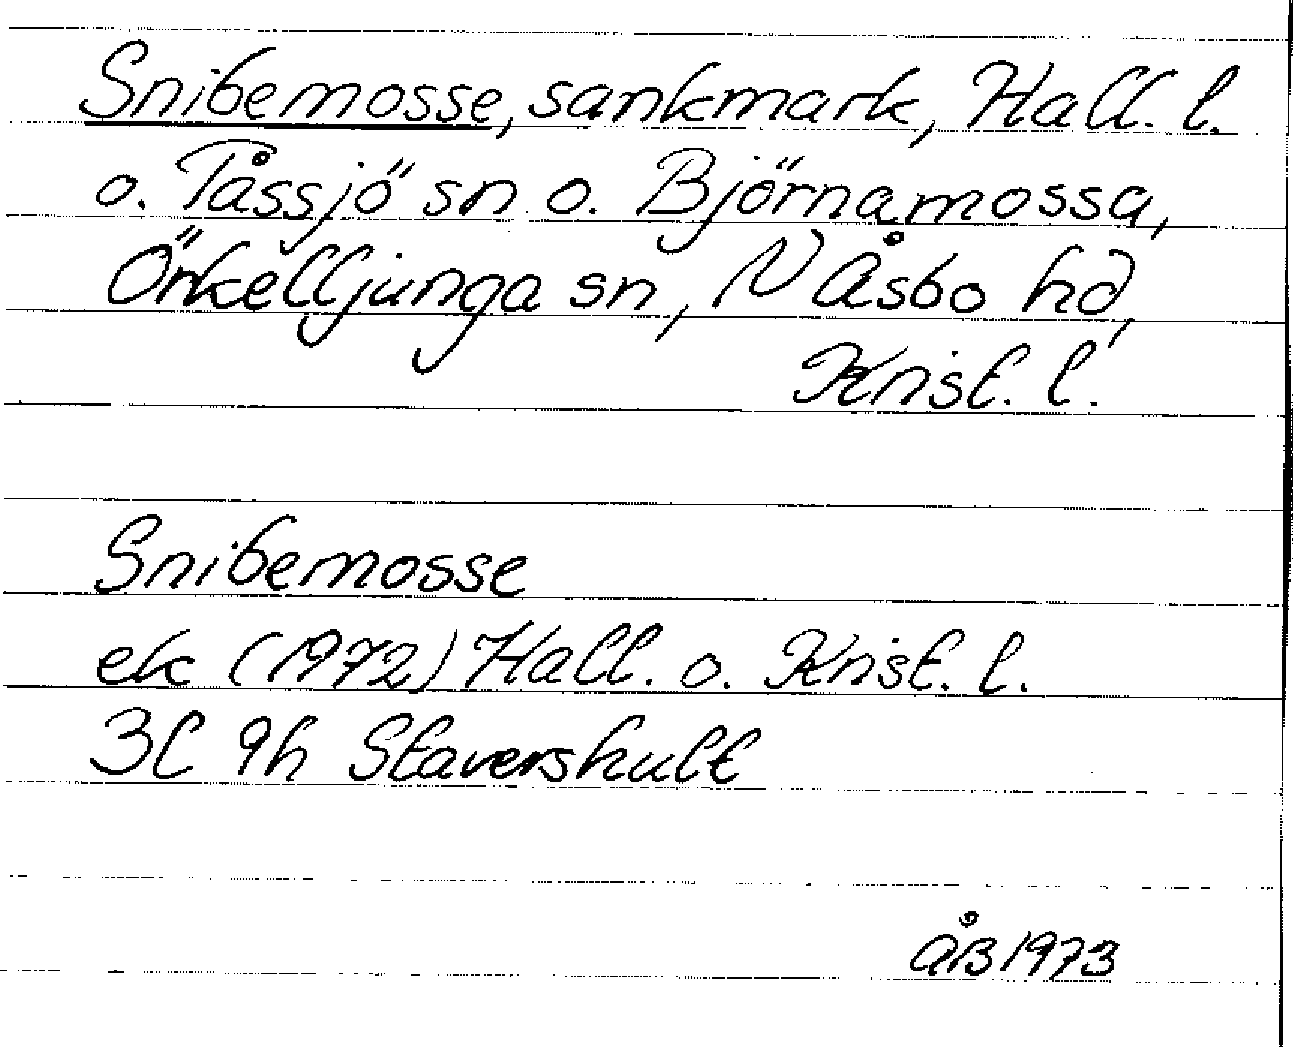 Snibemosse, sankmark, Hall. l.
o. Tåssjö sn o. Björnamossa,
Örkelljunga sn, N Åsbo hd,
Krist. l.
Snibemosse
ek (1972) Hall. o. Krist. l.
3C 9h Stavershult
ÅB 1973